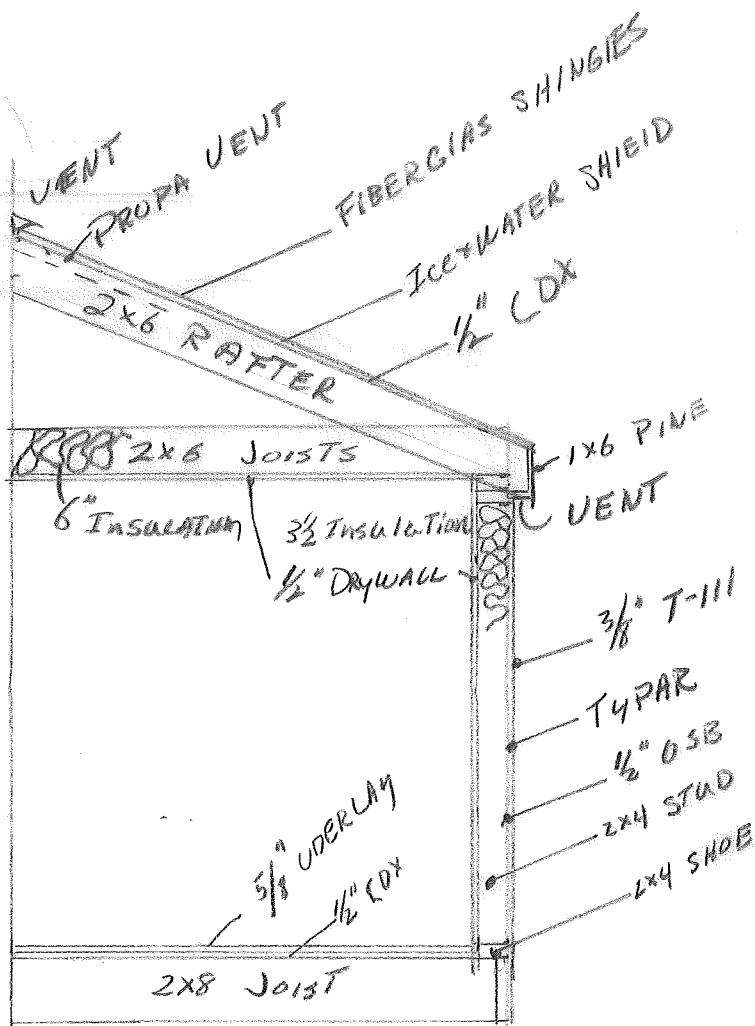 VENT
PROPA VENT
FIBERGLAS SHINGLES
ICE+WATER SHIELD
1/2" CDX
2x6 RAFTER
2x6 JOISTS
1x6 PINE
VENT
6" INSULATION
3 1/2 Insulation
1/2" DRYWALL
3/8" T-111
TYPAR
1/2" OSB
2x4 STUD
2x4 SHOE
5/8" UDERLAY
1/2" CDX
2x8 JOIST